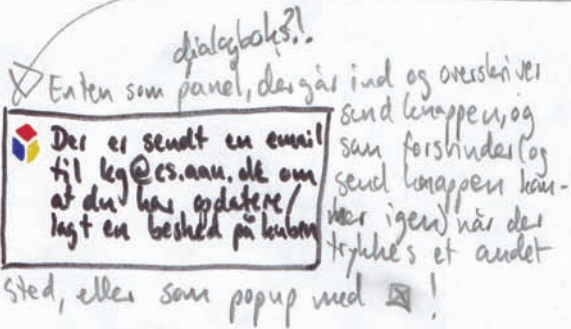 dialogboks?!
Enten som panel, der går ind og overskriver
send knappen, og
så forsvinder (og
send knappen kom-
mer igen) når der
trykkes et andet
sted, eller som popup med ☒ !
Der er sendt en email
til kg@cs.aau.dk om
at du har opdatere/
lagt en besked på kuben